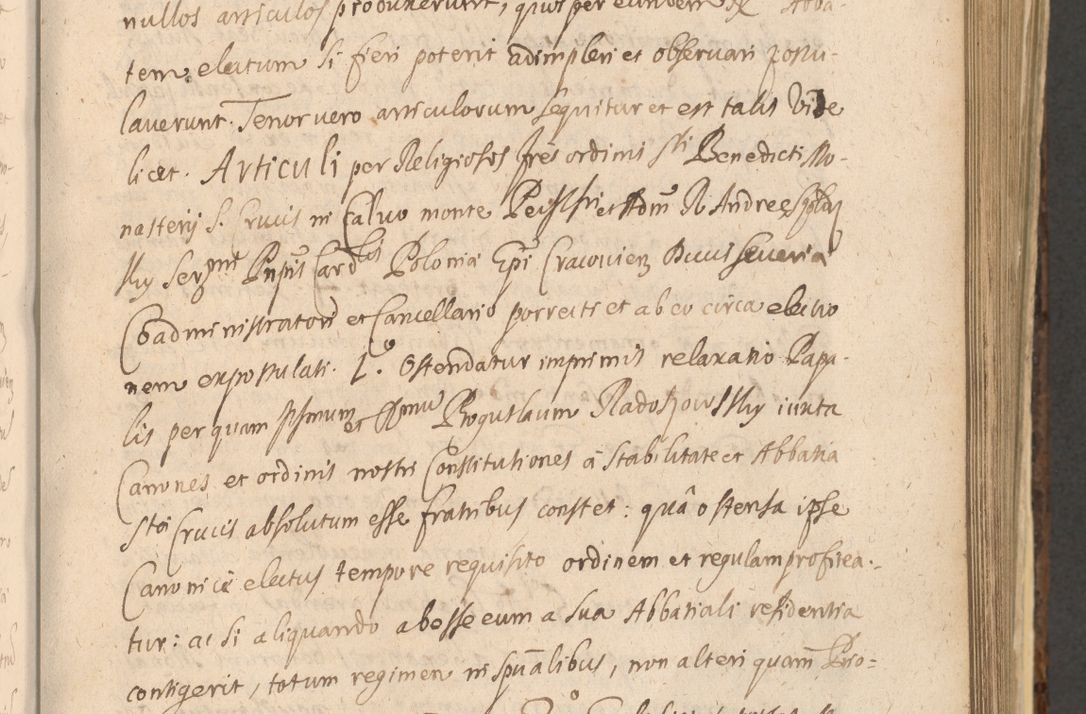 nullos articulos produxerunt, quos per eundem R. Abba-
tem electum si fieri poterit adimpleri et observari postu-
laverunt. Tenor vero articulorum sequitur et est talis Vide
licet. Articuli per Religiosos fres ordinis Sti Benedicti Mo-
nasterij S. Crucis in Calvo monte et Adm R Andreę
sky Polonię Epi Cracovien Ducis Severię
Coadministratori et Cancellario porrecti et ab eo circa electio
nem expostulati. 1.o Ostendatur imprimis relaxatio Papa-
lis per quam et Boguslaum Radoszowsky iuxta
Canones et ordinis nostri Constitutiones à stabilitate et Abbatia
Stæ Crucis absolutum esse fratribus constet: quâ ostensa ipse
Canonicè electus tempore requisito ordinem et regulam profitea-
tur: ac si aliquando abesse eum a sua Abbatiali residentia
contigerit, totum regimen in spualibus, non alteri quam Prio-